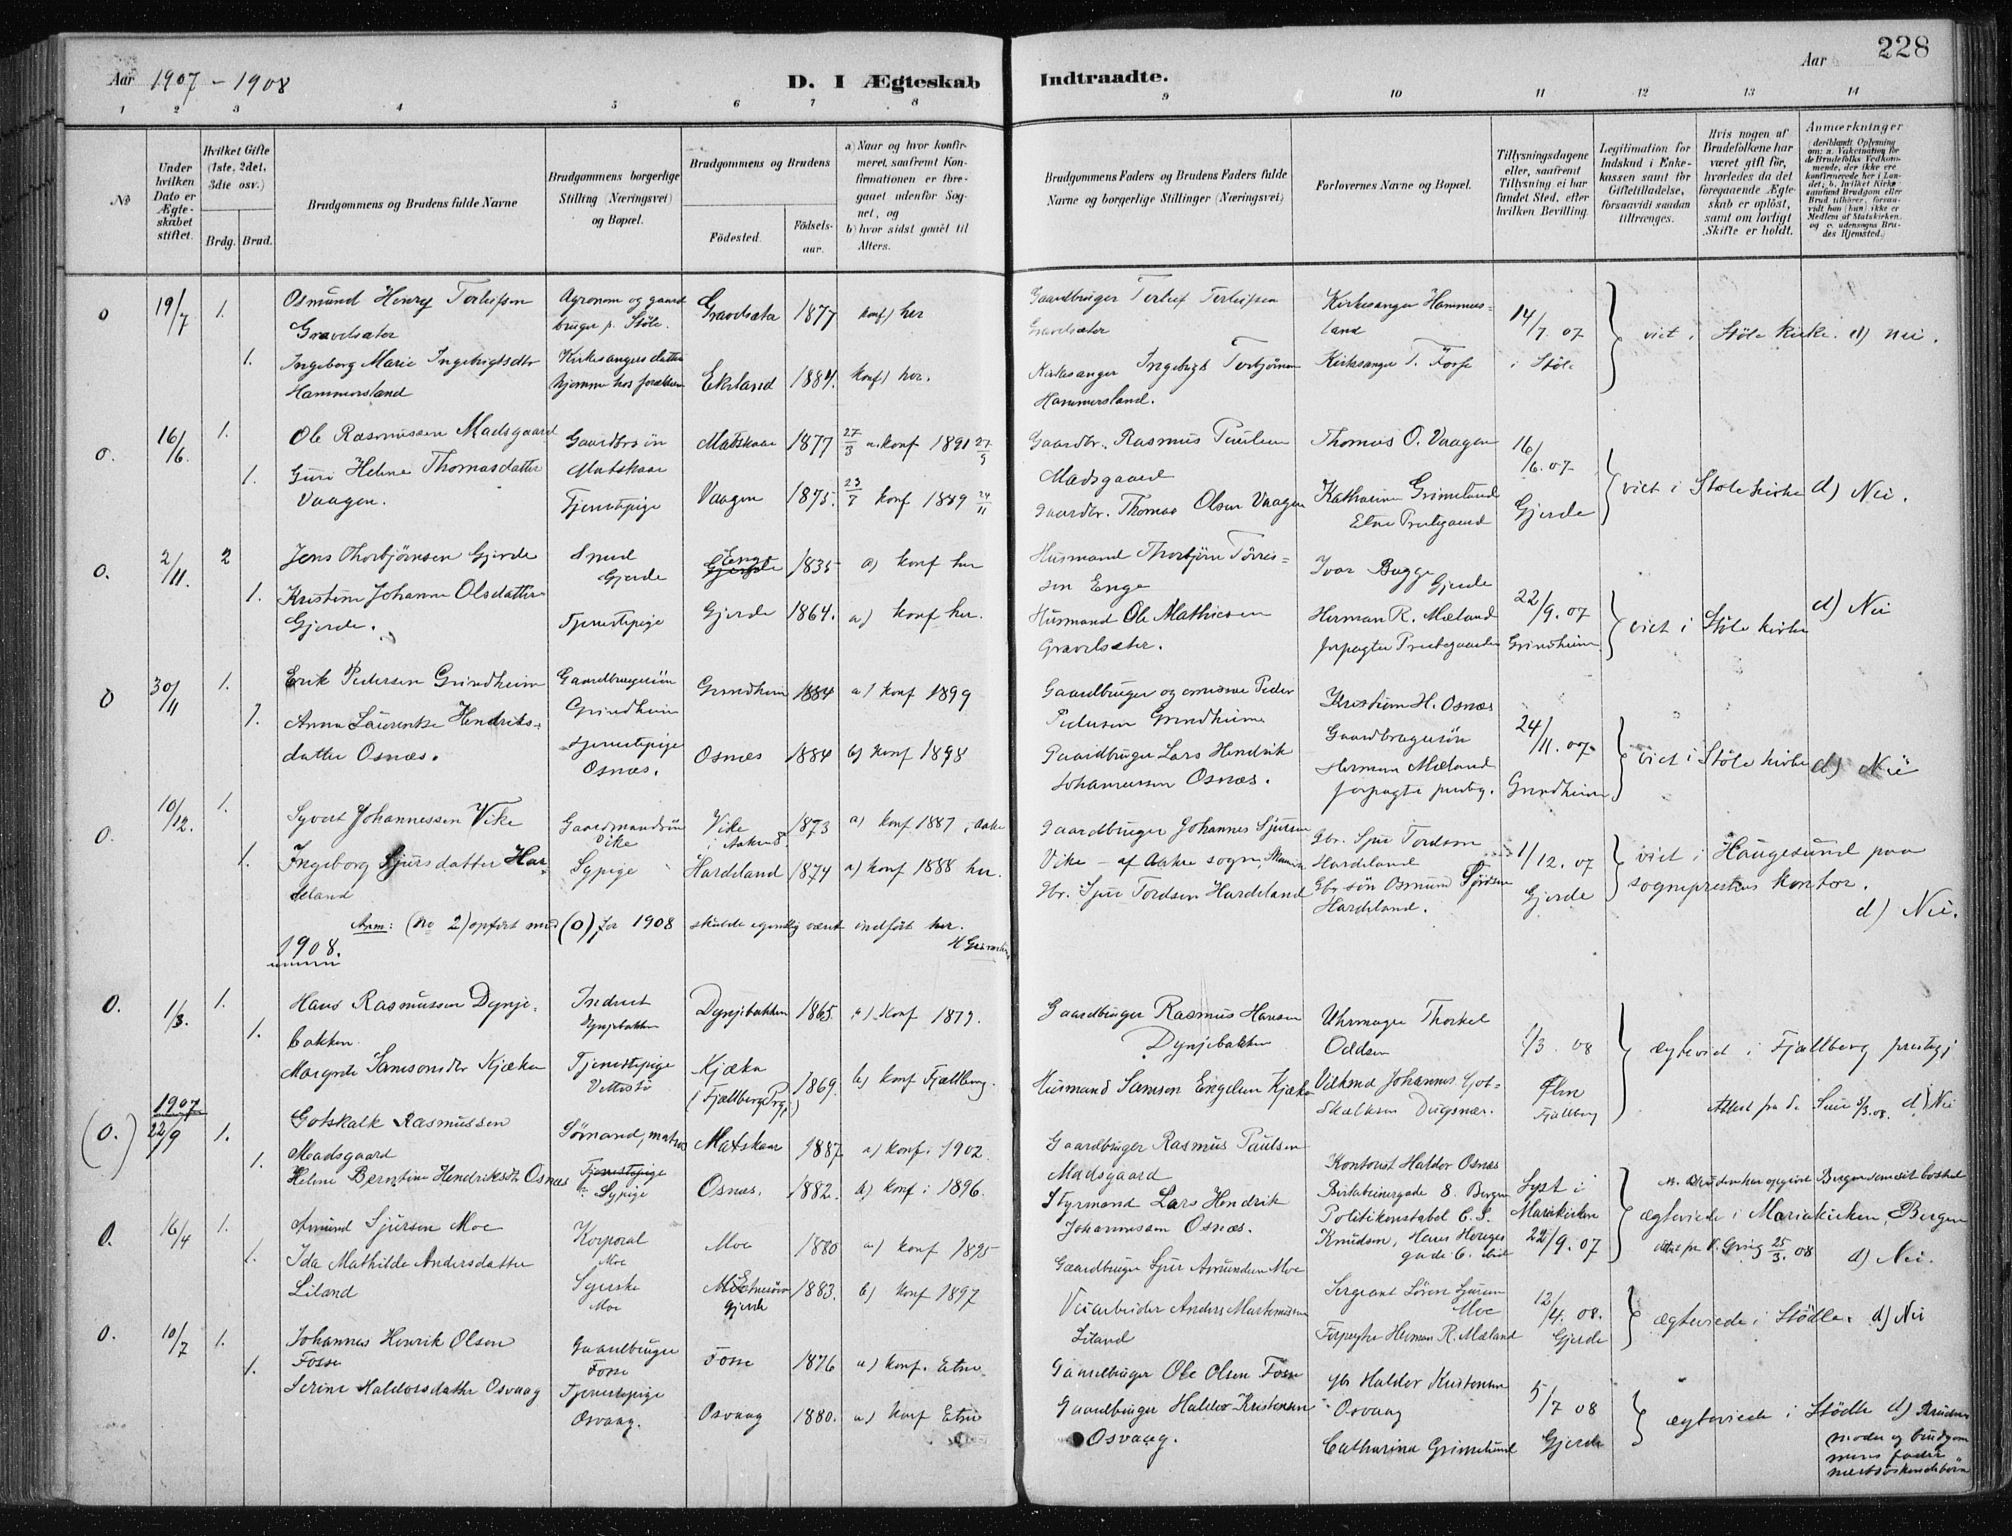 Aar 1907 - 1908
D. I Ægteskab Indtraadte.
Aar 228
1 2 3 4 5 6 7 8 9 10 11 12 13 14
No
Under hvilken Dato er Ægteskabet stiftet.
Hvilket Gifte (1ste, 2det, 3die osv.)
Brdg. Brud.
Brudgommens og Brudens fulde Navne
Brudgommens borgerlige Stilling (Næringsvei) og Bopæl.
Brudgommens og Brudens
Fødested.
Fødsels-aar.
a) Naar og hvor konfirmeret, saafremt Konfirmationen er foregaaet udenfor Sognet, og
b) hvor sidst gaaet til Alters.
Brudgommens Faders og Brudens Faders fulde Navne og borgerlige Stillinger (Næringsvei)
Forlovernes Navne og Bopæl.
Tillysningsdagene eller, saafremt Tillysning ei har fundet Sted, efter hvilken Bevilling.
Legitimation for Indskud i Enkekassen samt for Giftetilladelse, forsaavidt saadan tiltrænges.
Hvis nogen af Brudefolkene har været gift før, hvorledes da det foregaaende Ægteskab er opløst, samt om lovligt Skifte er holdt.
Anmærkninger
o 19/7 1. Osmund Henry Terleifsen
Gravelsæter
Agronom og gaardbruger p. Støle. Gravelsæter 1877 konf) her
Gaardbruger Terleif Terleifsen
Gravelsæter
Kirkesanger Hammersland
14/7. 07
i Støle
viet i Støle kirke. d) nei.
1. Ingeborg Marie Ingebrigtsdtr
Hammersland
Kirkesangers datter
hjemme hos forældrene Ekeland 1884. konf) her.
Kirkesanger Ingebrigt Torbjørnsen
Hammersland.
Kirkesanger T. Fosse
o. 16/6 1. Ole Rasmussen Madsgaard
Gaardbrsøn
Matskaar Matskaar 1877 27/3 a. konf 1891 27/9
Gaardbr. Rasmus Paulsen
Madsgaard
Thomas O. Vaagen
16/6. 07
Gjerde
viet i Støle kirke d) Nei.
1. Guri Helene Thomasdatter
Vaagen.
Tjenestepige Vaagen 1875. konf 1889 24/11
Gaardbr. Thomas Olsen Vaagen
Katharina Grimelund
Etne Prestgaard
o. 2/11. 2 Jens Thorbjørnsen Gjerde
Smed
Gjerde Enge 1835 a) konf her
Husmand Thorbjørn Tørressen Enge
Ivar Bugge
Gjerde
22/9. 07
Grindheim
viet i Støle kirke d) Nei
1. Kristine Johanne Olsdatter
Gjerde.
Tjenestepige Gjerde 1864. a) konf her.
Husmand Ole Mathiesen
Gravelsæter.
Herman R. Mæland
forpagter Prestegaarden
o 30/11 1. Erik Pedersen Grindheim
Gaardbrugersøn
Grindheim Grindheim 1884 a) konf 1899
Gaardbruger og emisær Peder
Pedersen Grindheim
Kristian H. Osnæs
Gaardbrugersøn
24/11. 07
Grindheim
viet i Støle kirke d) Nei
1. Anna Laurentse Hendriksdatter Osnæs.
Tjenestepige
Osnæs. Osnæs 1884 b) konf 1898
Gaardbruger Lars Hendrik
Johannessen Osnæs.
Herman Mæland
forpagter prestg.
o. 10/12. 1. Syvert Johannessen Vike
Gaardmandssøn
Vike Vike i Aakre S. 1873 a) konf 1887 i Aakre
Gaardbruger Johannes Sjursen
Vike - af Aakre sogn,
Gbr. Sjur Tordsen
Hardeland
1/12. 07
Gjerde
viet i Haugesund paa
sogneprestens kontor.
d) Nei.
1. Ingeborg Sjursdatter Hardeland
Sypige Hardeland 1874 a) konf 1888 her.
Gbr. Sjur Tordsen Hardeland
Gbr søn Osmund Sjursen
Hardeland.
Anm: (no 2) opført med (o) for 1908 skulde egentlig været indført her.
H Grimelund
1908.
o. 1/3. 1. Hans Rasmussen Dynjebakken
Inderst
Dynjebakken Dynjebakken 1865. a) konf 1879.
Gaardbruger Rasmus Hansen
Dynjebakken
Uhrmager Thorkel
Oddsen
1/3. 08
Ølen
Fjellberg
ægteviet i Fjellberg prestegj
Attest fra d. 5/3. 08. d) Nei
1. Margrete Samsonsdtr Kjæka
Tjenestepige
Vettestø Kjæka
(Fjellberg Prgj.) 1869. b) konf Fjellberg.
Husmand Samson Engelsen Kjæka
Vilhelmd Johannes Gotskalksen Dugsnæs.
1907
(o.) 22/9 1. Gotskalk Rasmussen
Madsgaard
Sømand, matros Matskaar 1887 a) konf. i 1902.
Gaardbruger Rasmus Paulsen
Madsgaard
Kontorist Haldor Osnæs
Bergen
Lyst i
Mariakirken
22/9. 07
ægteviede i Mariakirken, Bergen
25/3. 08 d) Nei.
1. Helene Berntine Hendriksdtr Osnæs
Tjenestepige
Sypige Osnæs. 1882. b) konf. i 1896.
Styrmand Lars Hendrik
Johannessen Osnæs.
Politikonstabel C. S.
Knudsen, Hans Hauges
gade 6. ibid
o. 16/4 1. Amund Sjursen Moe
Korporal
Moe Moe 1880 a) konf 1895
Gaardbruger Sjur Amundsen Moe
Sergeant Søren Sjursen
Moe
12/4. 08.
Gjerde
ægteviede i Stødle. d) Nei
1. Ida Mathilde Andersdatter
Liland
Syerske
Moe
Gjerde 1883. b) konf 1897
Veiarbeider Anders Martinussen
Liland
Forpagter Herman R. Mæland
o. 10/7 1. Johannes Henrik Olsen
Fosse
Gaardbruger
Fosse Fosse 1876 a) konf. Etne
Gaardbruger Ole Olsen Fosse
gbr Haldor Kristensen
Osvaag
5/7 08
Gjerde
ægteviede i Stødle d) Brudens
moder og brudgommens fader
næstsøskendebørn
1. Serine Haldorsdatter Osvaag
Tjenestepige
Osvaag. Osvaag 1880. a) konf Etne
Gaardbruger Haldor Kristensen
Osvaag.
Catharina Grimelund